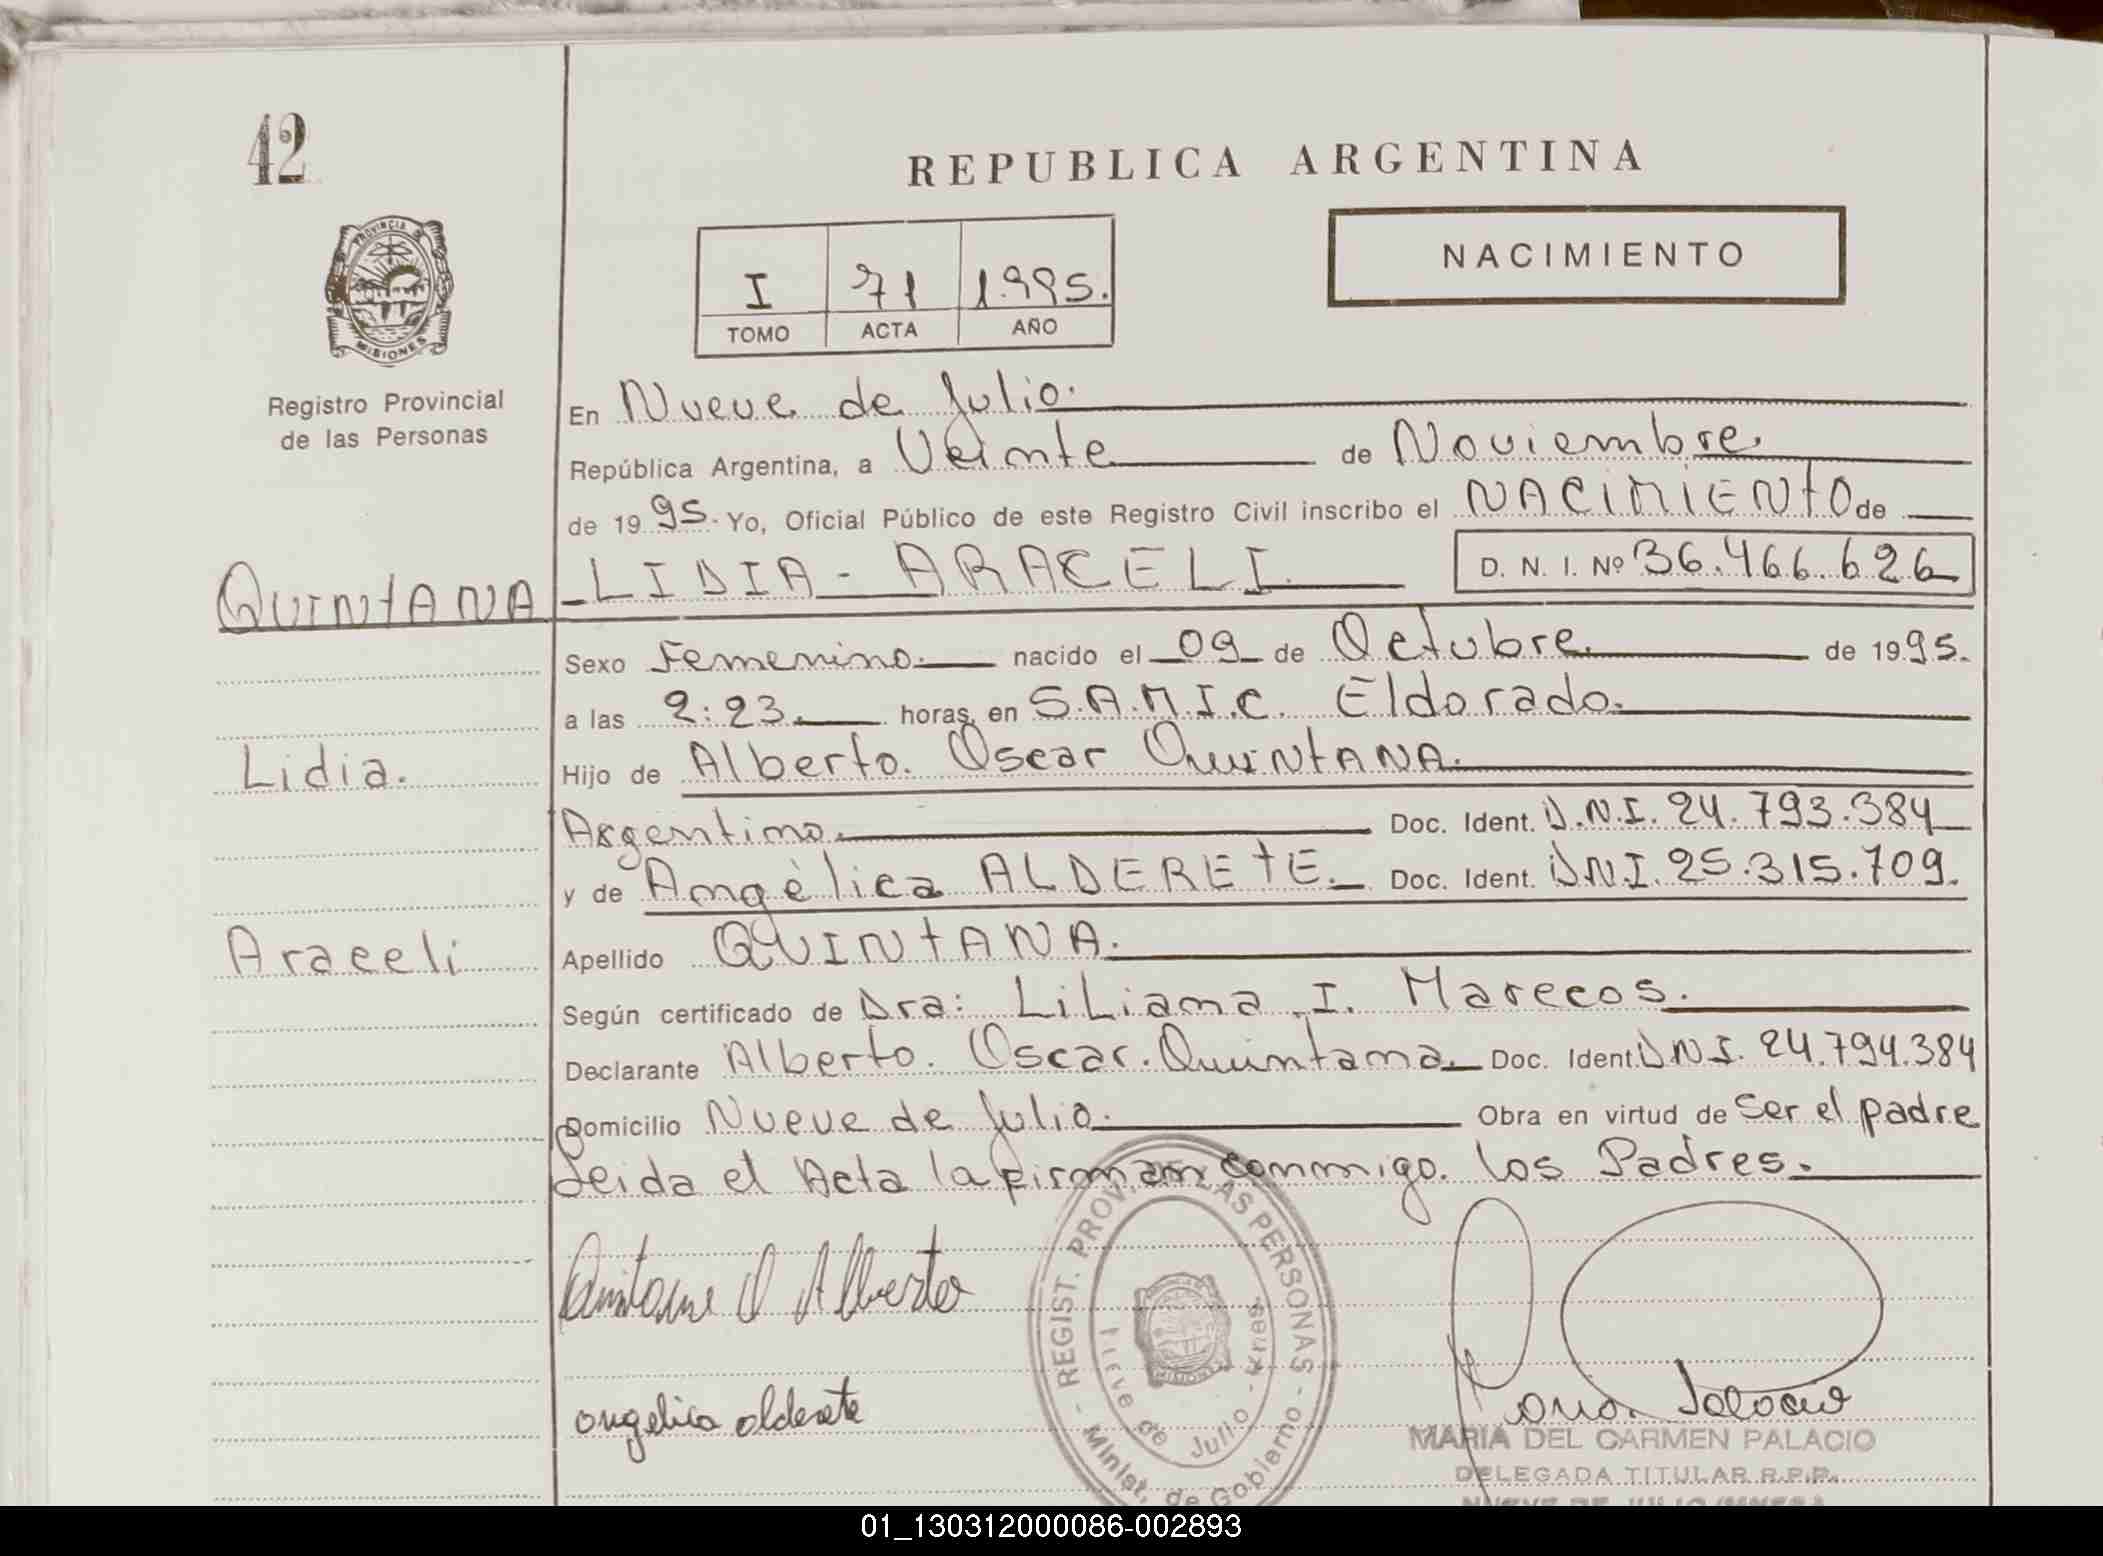 42
REPUBLICA ARGENTINA
PROVINCIA DE MISIONES
NACIMIENTO
I 71 1.995.
TOMO ACTA AÑO
Registro Provincial
de las Personas
En Nueve de Julio.
República Argentina, a Veinte de Noviembre
de 19 95. Yo, Oficial Público de este Registro Civil inscribo el NACIMIENTO de
QUINTANA LIDIA - ARACELI D. N. I. Nº 36.466.626
Sexo Femenino. nacido el 09 de Octubre de 19 95.
a las 2:23 horas, en S.A.M.I.C. Eldorado.
Lidia. Hijo de Alberto. Oscar QUINTANA.
Argentino. Doc. Ident. D.N.I. 24.793.384
y de Angélica ALDERETE. Doc. Ident. D.N.I. 25.315.709.
Araceli Apellido QUINTANA.
Según certificado de Dra: Liliana I. Marecos.
Declarante Alberto. Oscar. Quintana. Doc. Ident. D.N.I. 24.794.384
Domicilio Nueve de Julio. Obra en virtud de ser el padre
Leida el Acta la firman conmigo. los Padres.
REGIST. PROV. DE LAS PERSONAS
Nueve de Julio - Mnes.
- Minist. de Gobierno -
MISIONES
Quintana O Alberto
angelica alderete
Maria Palacio
MARIA DEL CARMEN PALACIO
DELEGADA TITULAR R.P.P.
NUEVE DE JULIO (MNES)
01_130312000086-002893